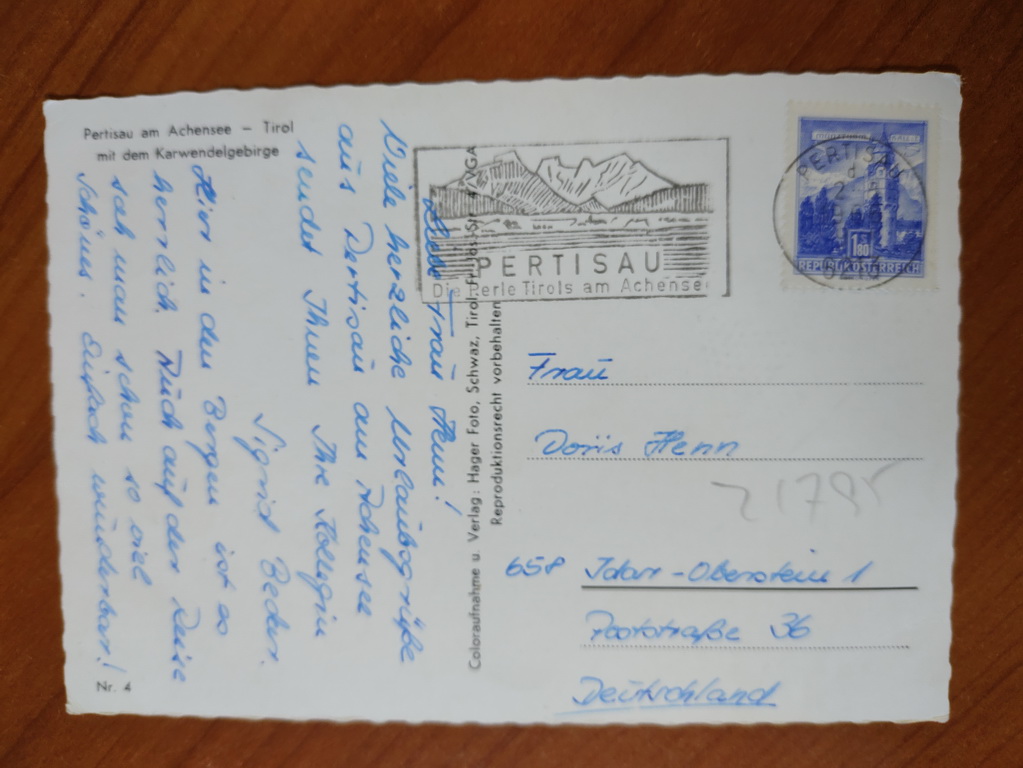 Pertisau am Achensee – Tirol
mit dem Karwendelgebirge
Liebe Frau Henn!
Viele herzliche Urlaubsgrüße
aus Pertisau am Achensee
sendet Ihnen Ihre Kollegin
Sigrid Becker.
Hier in den Bergen ist es
herrlich. Auch auf der Reise
sah man schon so viel
schönes. Einfach wunderbar!
Nr. 4
Coloraufnahme u. Verlag: Hager Foto, Schwaz, Tirol,
Reproduktionsrecht vorbehalten
PERTISAU
Die Perle Tirols am Achensee
PERTISAU
1.80
REPUBLIK ÖSTERREICH
Frau
Doris Henn
21795
658 Idar-Oberstein 1
Poststraße 36
Deutschland